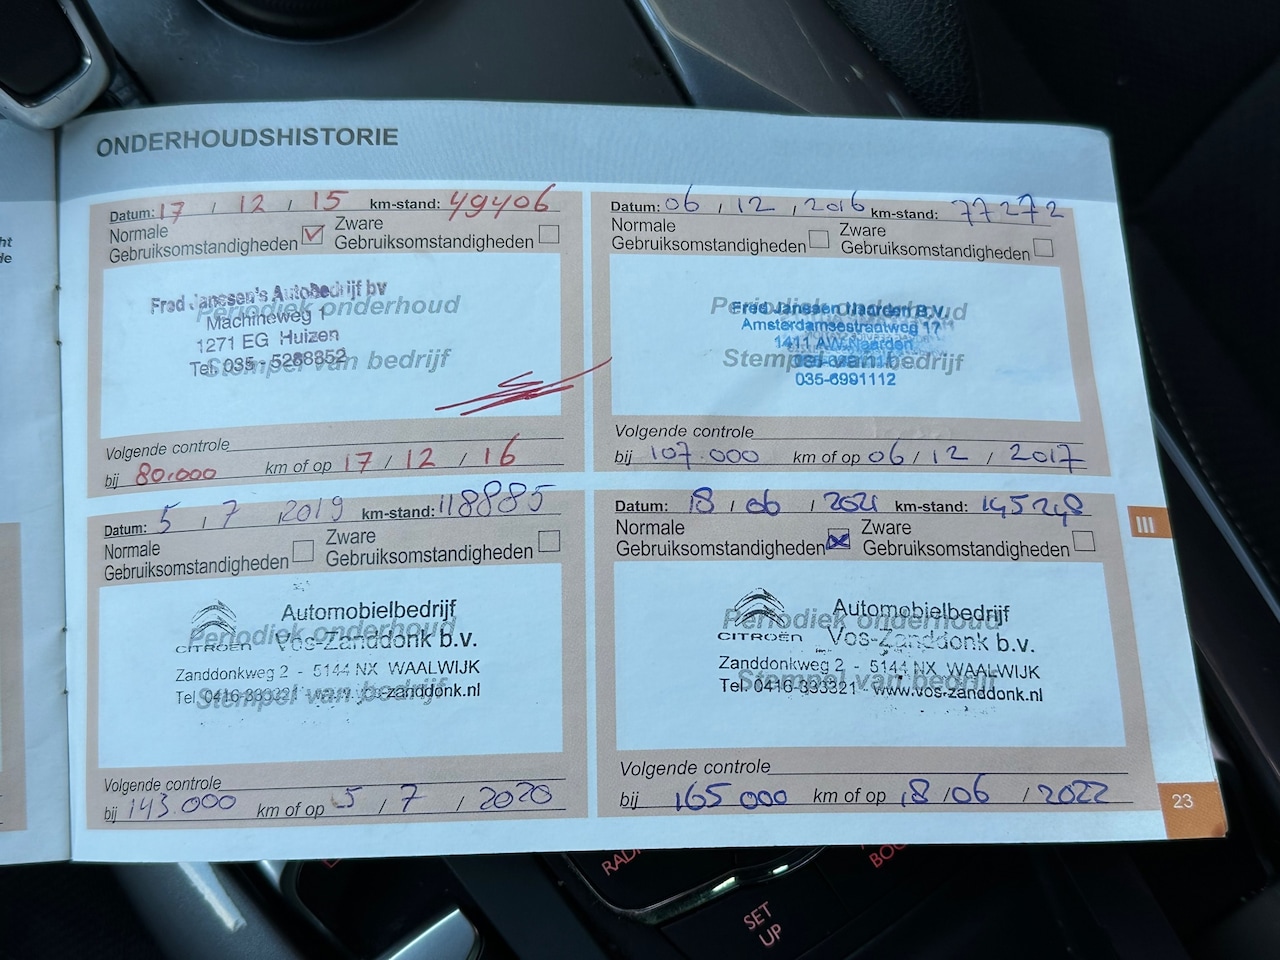 ONDERHOUDSHISTORIE
Datum: 17 / 12 / 15 km-stand: 49406
Normale Gebruiksomstandigheden
Zware Gebruiksomstandigheden
Periodiek onderhoud
Stempel van bedrijf
Fred Janssen's Autobedrijf bv
Machineweg 1
1271 EG Huizen
Tel. 035 - 5288852
Volgende controle
bij 80.000 km of op 17 / 12 / 16
Datum: 06 / 12 / 2016 km-stand: 77272
Normale Gebruiksomstandigheden
Zware Gebruiksomstandigheden
Periodiek onderhoud
Stempel van bedrijf
Fred Janssen Naarden B.V.
Amsterdamsestraatweg 17
1411 AW Naarden
035-6991112
Volgende controle
bij 107.000 km of op 06 / 12 / 2017
Datum: 5 / 7 / 2019 km-stand: 118885
Normale Gebruiksomstandigheden
Zware Gebruiksomstandigheden
Periodiek onderhoud
Stempel van bedrijf
CITROËN
Automobielbedrijf
Vos-Zanddonk b.v.
Zanddonkweg 2 - 5144 NX WAALWIJK
Tel 0416-333321 - www.vos-zanddonk.nl
Volgende controle
bij 143.000 km of op 5 / 7 / 2020
Datum: 18 / 06 / 2021 km-stand: 145248
Normale Gebruiksomstandigheden
Zware Gebruiksomstandigheden
Periodiek onderhoud
Stempel van bedrijf
CITROËN
Automobielbedrijf
Vos-Zanddonk b.v.
Zanddonkweg 2 - 5144 NX WAALWIJK
Tel 0416-333321 - www.vos-zanddonk.nl
Volgende controle
bij 165 000 km of op 18 / 06 / 2022
III
23
SET
UP